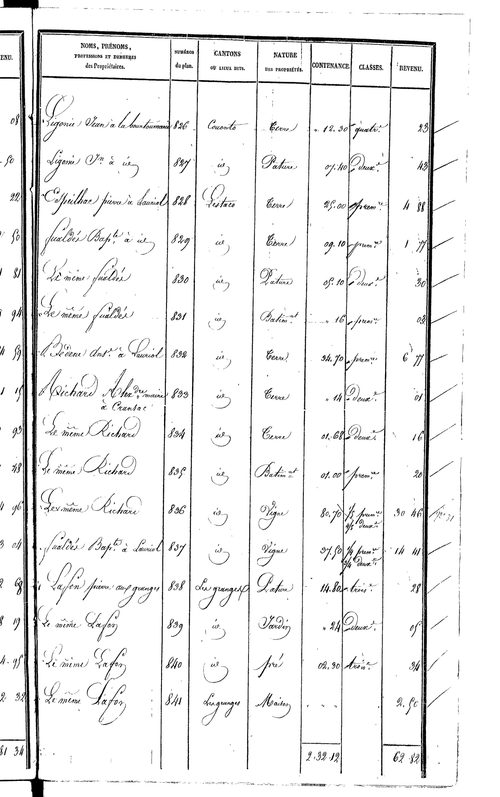 NOMS, PRÉNOMS, PROFESSIONS ET DEMEURES des Propriétaires. NUMÉROS du plan. CANTONS OU LIEUX DITS. NATURE DES PROPRIÉTÉS. CONTENANCE. CLASSES. REVENU.
Ligonie Jean à la 826 Terre 12.30 quatr.e 23
Ligonie Jn à id 827 id Pature 07.40 Deux.e 43
pierre à Lauriol 828 Lestrade Terre 25.00 prem.re 4 88
Fualdés Bap.te à id 829 id Terre 09.10 prem.re 1 77
Le même Fualdés 830 id Pature 05.10 Deux.e 30
Le même Fualdés 831 id Batim.nt 16 prem.re 03
Ant.ne à Lauriol 832 id Terre 34.70 prem.re 6 77
Richard Alex.dre maire à Cransac 833 id Terre 14 Deux.e 01
Le même Richard 834 id Terre 01.68 Deux.e 16
Le même Richard 835 id Batim.nt 01.00 prem.re 20
Le même Richard 836 id Vigne 80.70 1/3 prem.re 2/3 deux.e 30 46
Fualdés Bap.te à Lauriol 837 id Vigne 37.50 1/4 prem.re 3/4 deux.e 14 41
Lafon pierre aux granges 838 Les granges Pature 14.80 trois.e 28
Le même Lafon 839 id Jardin 24 Deux.e 05
Le même Lafon 840 id pré 02.30 trois.e 34
Le même Lafon 841 Les granges Maison 2.50
2.32.12 62.82